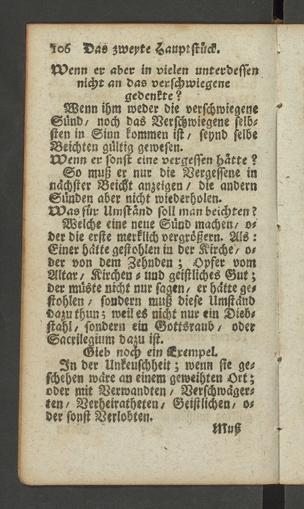 106 Das zweyte Hauptstück.
Wenn er aber in vielen unterdessen
nicht an das verschwiegene
gedenkte?
Wenn ihm weder die verschwiegene
Sünd/ noch das Verschwiegene selb-
sten in Sinn kommen ist/ seynd selbe
Beichten gültig gewesen.
Wenn er sonst eine vergessen hätte?
So muß er nur die Vergessene in
nächster Beicht anzeigen/ die andern
Sünden aber nicht wiederholen.
Was für Umständ soll man beichten?
Welche eine neue Sünd machen/ o-
der die erste merklich vergrößern. Als:
Einer hätte gestohlen in der Kirche/ o-
der von dem Zehnden; Opfer vom
Altar/ Kirchen- und geistliches Gut;
der müste nicht nur sagen/ er hätte ge-
stohlen/ sondern muß diese Umständ
dazu thun; weil es nicht nur ein Dieb-
stahl/ sondern ein Gottsraub/ oder
Sacrilegium dazu ist.
Gieb noch ein Exempel.
In der Unkeuschheit; wenn sie ge-
schehen wäre an einem geweihten Ort;
oder mit Verwandten/ Verschwäger-
ten/ Verheiratheten/ Geistlichen/ o-
der sonst Verlobten.
Muß